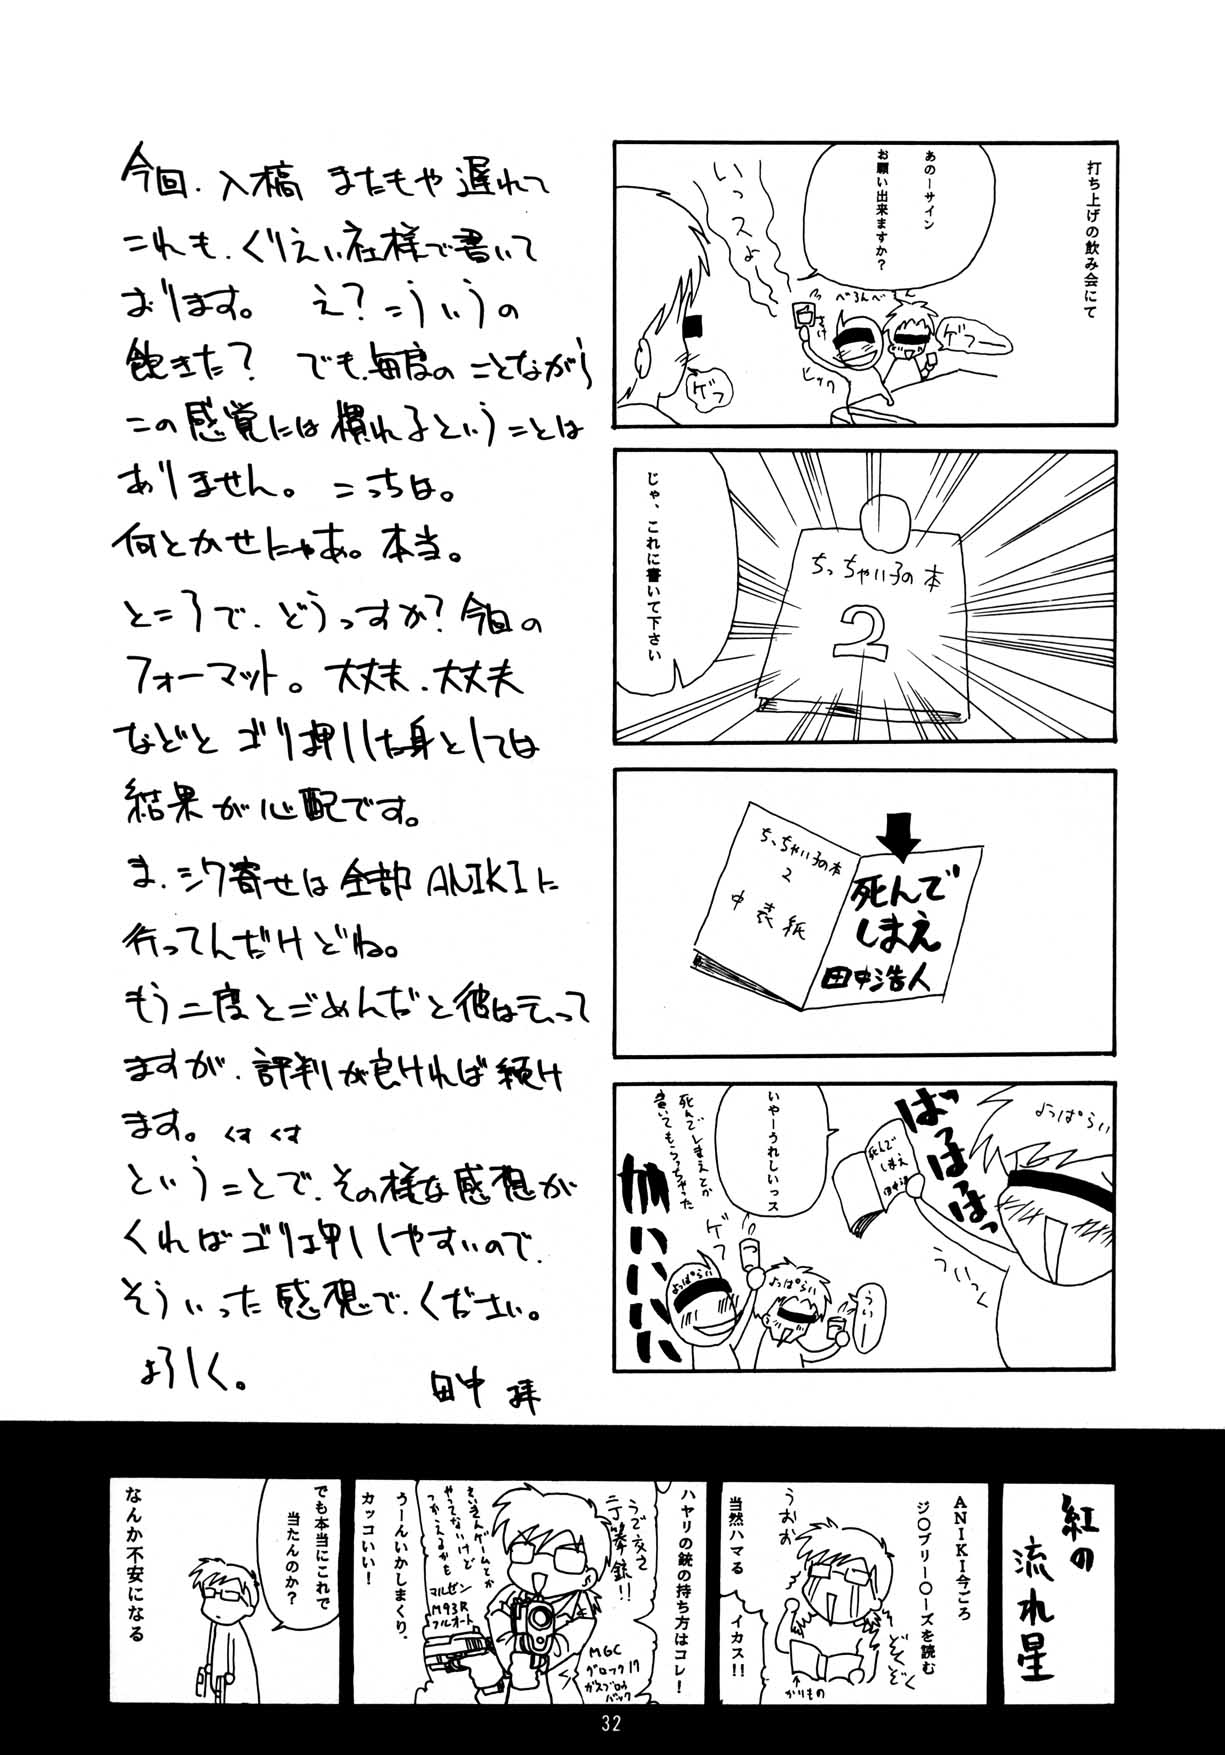 今回、入稿 またもや遅れて
これも、くりえい社様で書いて
おります。 え？こういうの
飽きた？ でも、毎度のことながら
この感覚には慣れるということは
ありません。こっちは。
何とかせにゃあ。本当。
ところで、どうっすか？今回の
フォーマット。大丈夫、大丈夫
などとゴリ押しした身としては
結果が心配です。
ま、シワ寄せは全部ANIKIに
行ってんだけどね。
もう二度とごめんだと彼は云って
ますが、評判が良ければ続け
ます。くすくす
ということで、その様な感想が
くればゴリ押ししやすいので、
そういった感想で、ください。
よろしく。
田中 拝
打ち上げの飲み会にて
あのーサイン
お願い出来ますか？
いっスよ
べろんべろん
さけ
ゲフー
ヒック
ゲフ
じゃ、これに書いて下さい
ちっちゃい子の本
2
ちっちゃい子の本
2
中表紙
死んで
しまえ
田中浩人
よっぱらい
ばっはっはっはっ
死んで
しまえ
ういっく
いやーうれしいっス
死んでしまえとか
書いてもらっちゃった
ゲフ
よっぱらい
よっぱらい
ういー
紅の
流れ星
ANIKI今ごろ
ジ○ブリー○ーズを読む
うおお
ぞくぞくぞく
かりもの
当然ハマる
イカス!!
ハヤリの銃の持ち方はコレ！
うで交さ
二丁拳銃!!
MGC
グロック17
ガスブロウ
バック
さいきんゲームとか
やってないけど
つかえるかも
マルゼン
M93R
フルオート
うーんいかしまくり、
カッコいい！
でも本当にこれで
当たんのか？
なんか不安になる
32